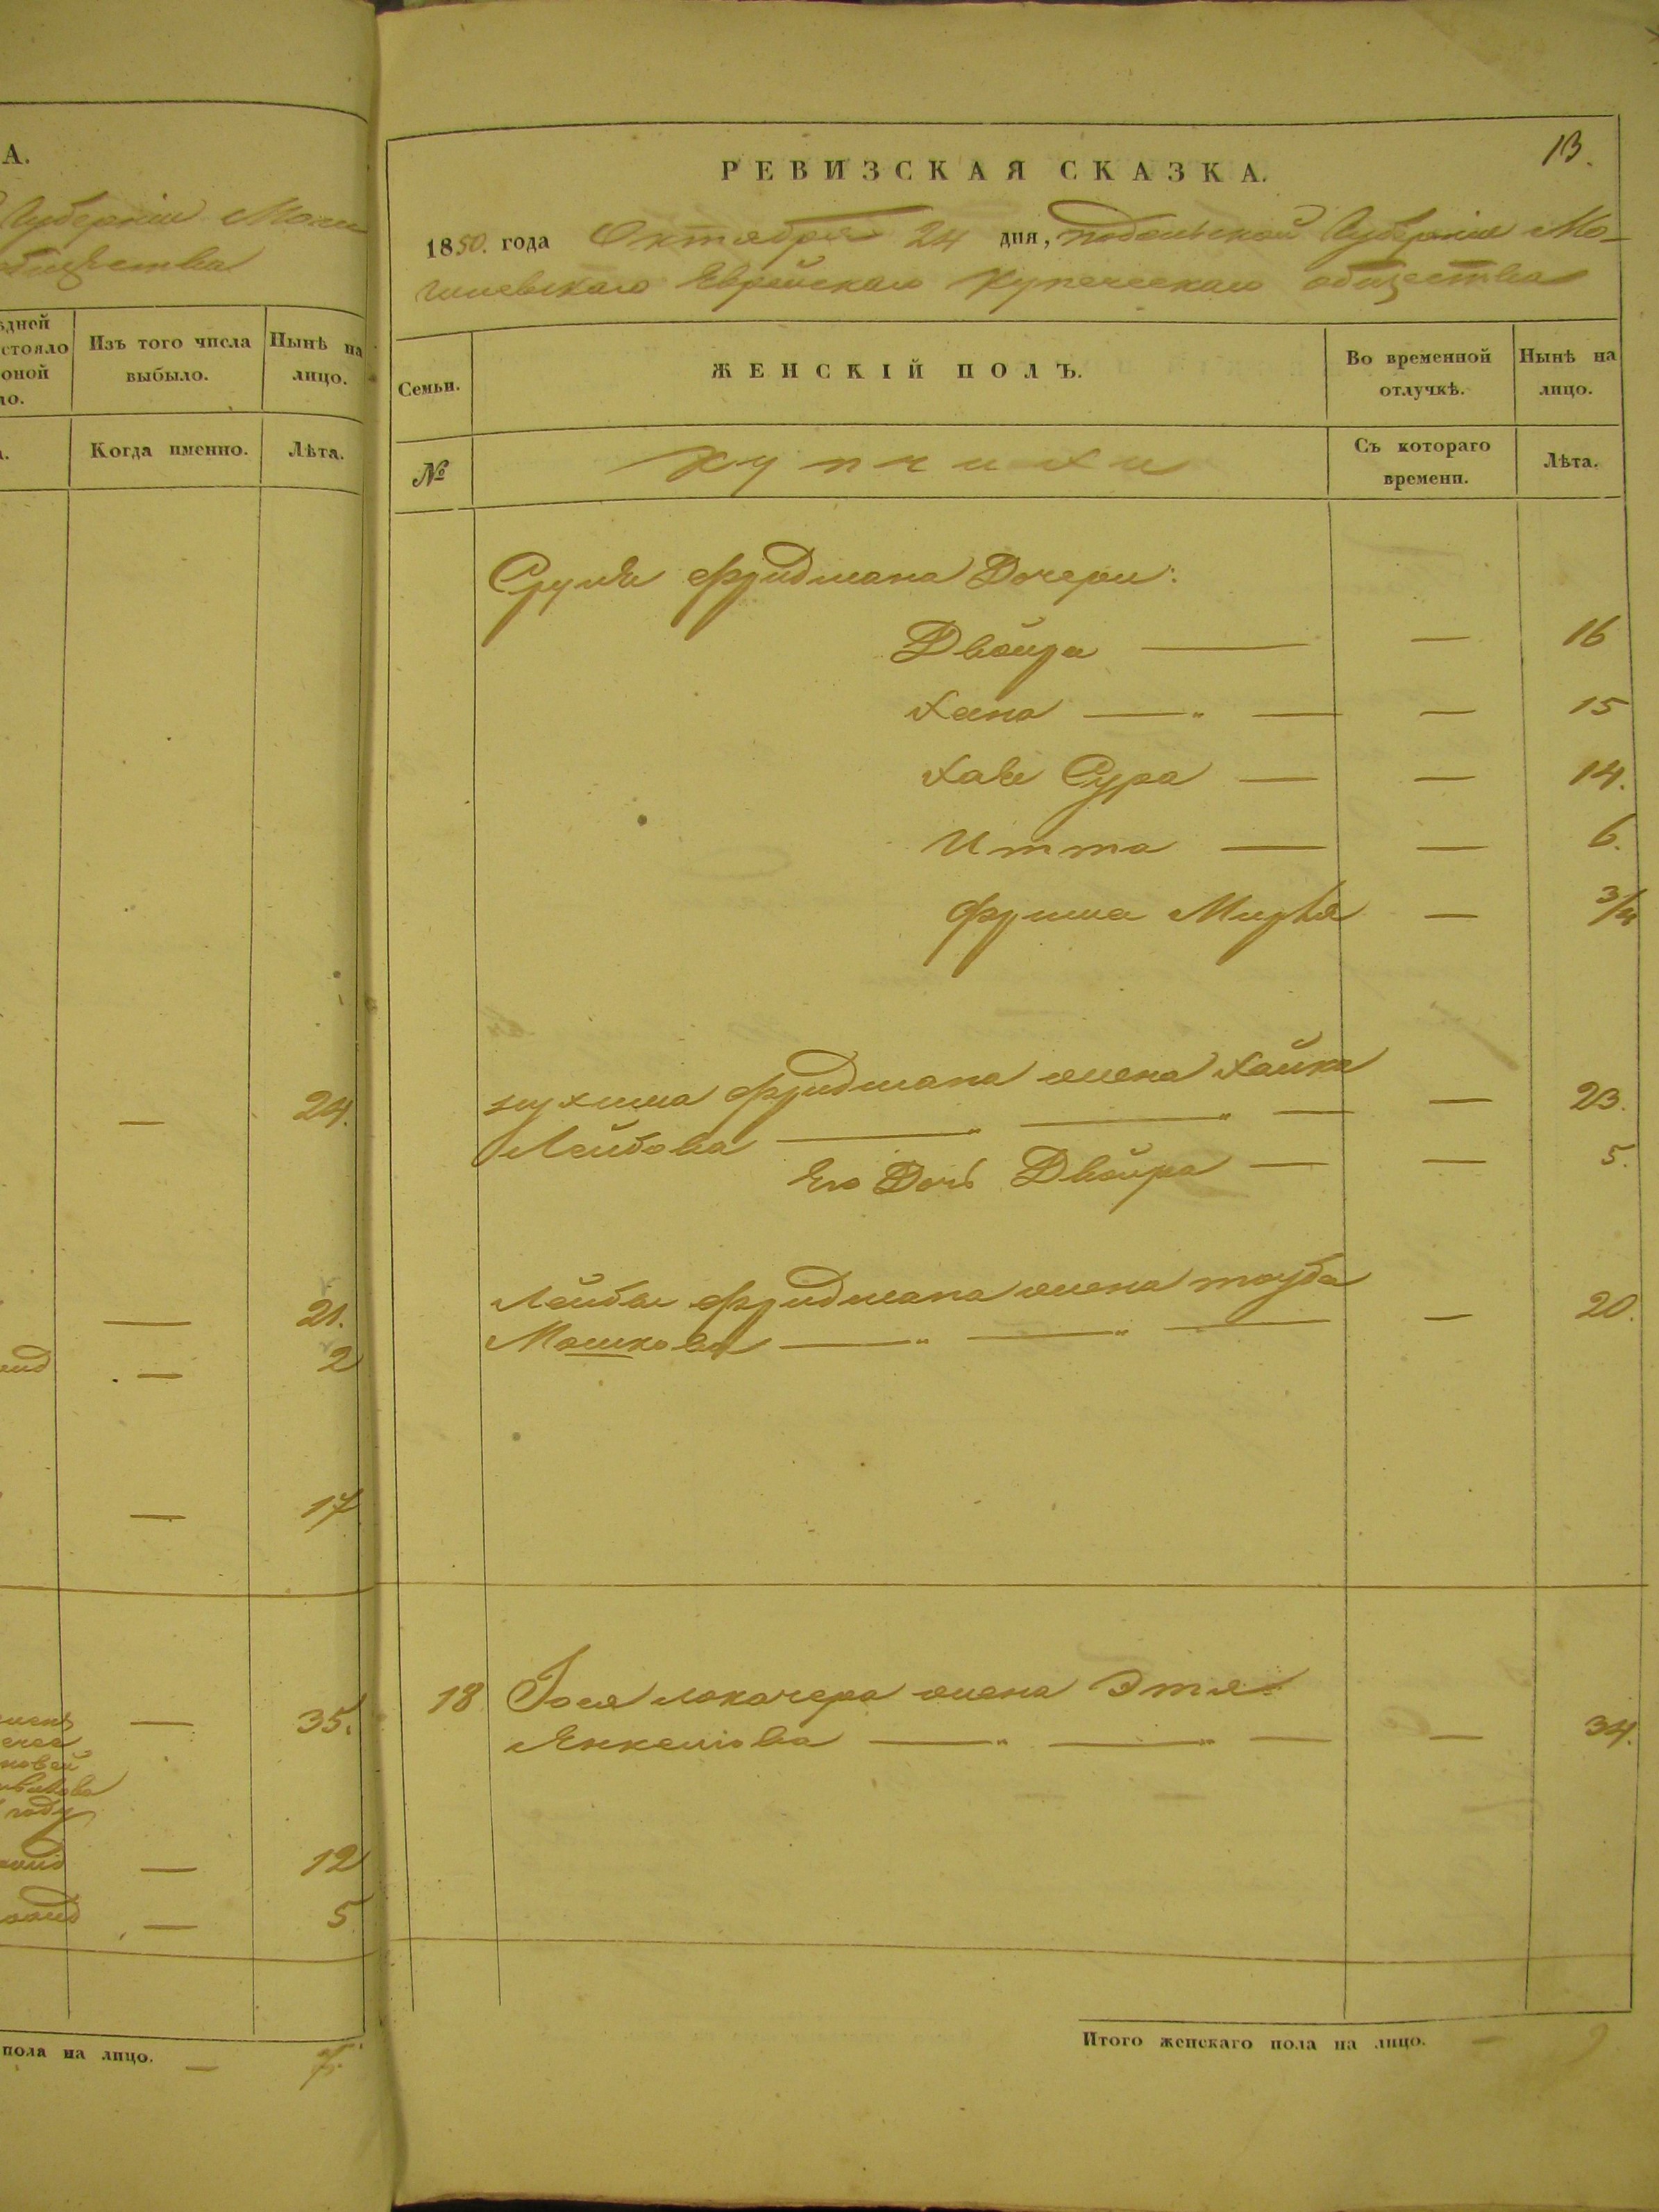 А.
Губерніи Моги
общества
ѣдней
стояло
оной
ло.
Изъ того числа
выбыло.
Нынѣ на
лицо.
Когда именно.
Лѣта.
— 24.
— 21.
— 2
— 17
— 35.
году
— 12
— 5
пола на лицо. — 7.
13.
РЕВИЗСКАЯ СКАЗКА.
1850. года Октября 24 дня, Подольской Губерніи Мо-
гилевскаго Еврейскаго Купеческаго общества
Семьи.
ЖЕНСКІЙ ПОЛЪ.
Во временной
отлучкѣ.
Нынѣ на
лицо.
№
Купчихи
Съ котораго
времени.
Лѣта.
Сруля Фридмана Дочери:
Двойра — — 16
Хана — " — — 15
Хаве Сура — — 14.
Итта — — 6.
Фрима Мирля — 3/4
Фридмана жена Хайка
Лейбова — " — " — — 23.
Его Дочь Двойра — — 5.
Лейбы Фридмана жена Тауба
Мошкова — " — " — — 20.
18 Іося Локачера жена Этля
Янкелiова — " — " — — 34.
Итого женскаго пола на лицо. — 9